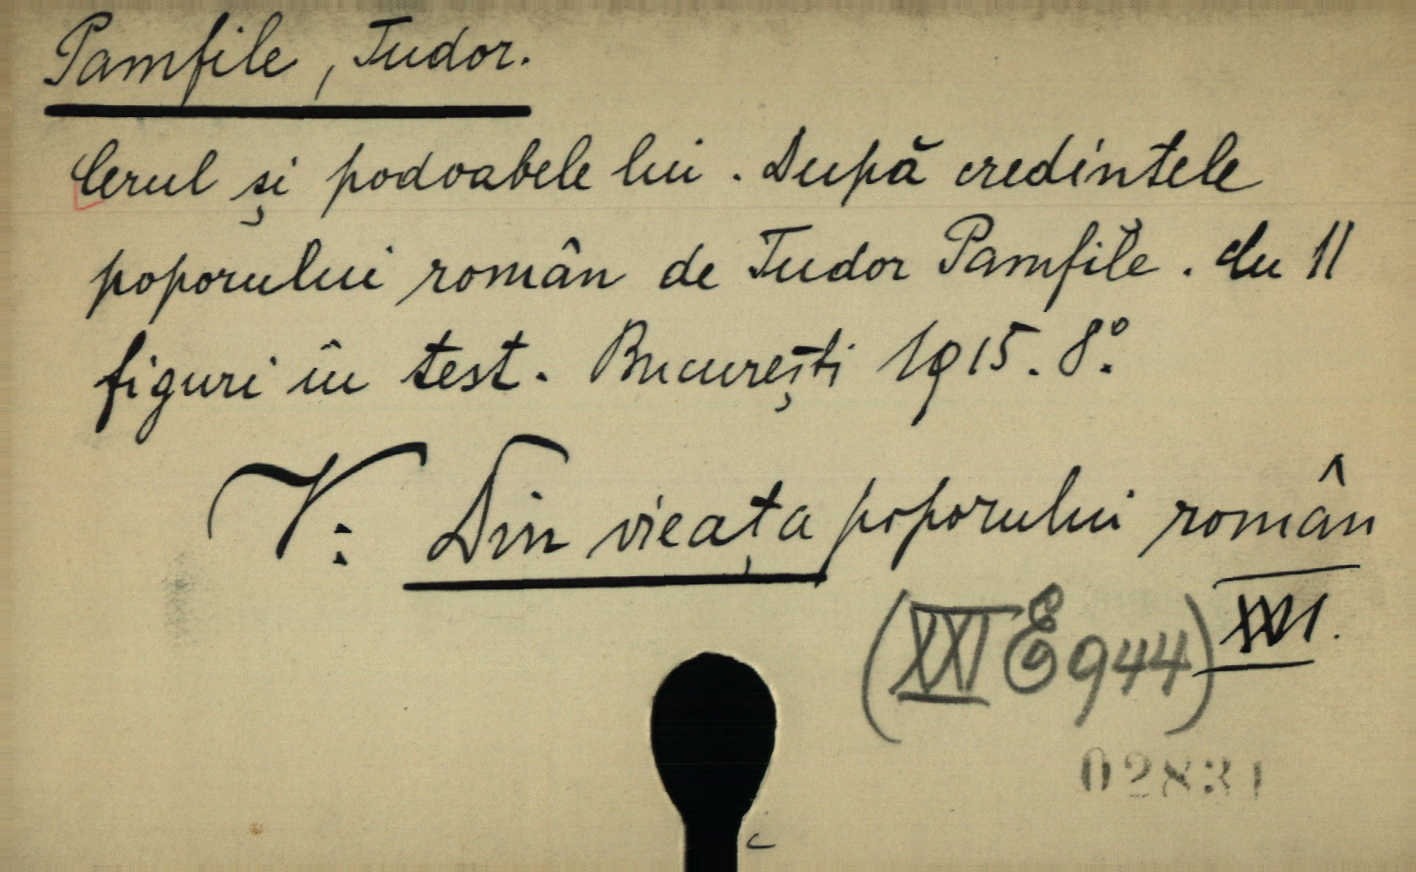 Pamfile, Tudor.
Cerul și podoabele lui. După credintele
poporului român de Tudor Pamfile. Cu 11
figuri în test. București 1915. 8°.
V: Din vieața poporului român
XXVI.
(XXI E 944)
02831